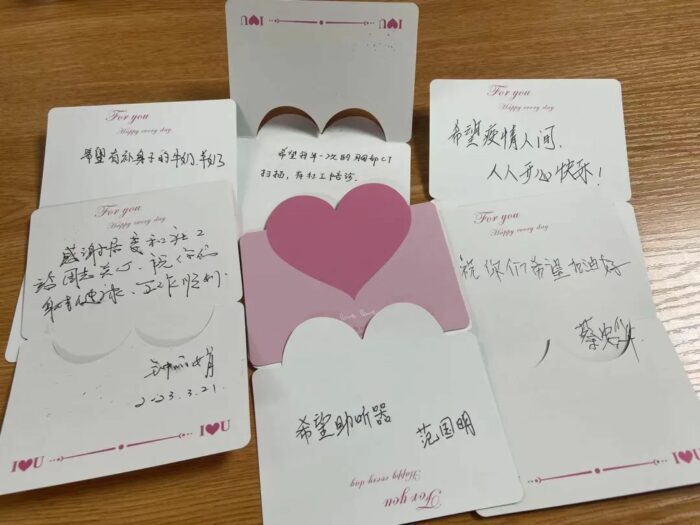 I♥U
For you
Happy every day
希望有补身子的牛奶、羊奶
希望每年一次的胸部CT
扫描，有社工陪诊.
For you
Happy every day
希望疫情人间，
人人开心快乐！
For you
Happy every day
感谢居委和社工
诸同志关心.祝你们
身体健康.工作顺利.
2023.3.21.
I♥U
I♥U
For you
Happy every day
祝你们希望加油好
蔡
I♥U
love love
希望助听器
范国明
For you
Happy every day